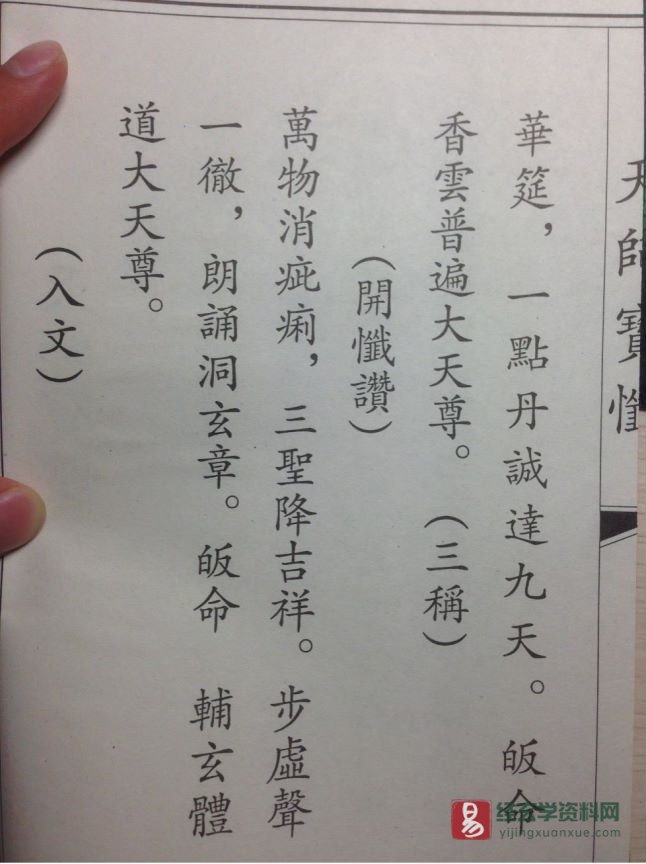 天師寶懺
華筵，一點丹誠達九天。皈命
香雲普遍大天尊。（三稱）
（開懺讚）
萬物消疵痢，三聖降吉祥。步虛聲
一徹，朗誦洞玄章。皈命　輔玄體
道大天尊。
（入文）
易
yijingxuanxue.com